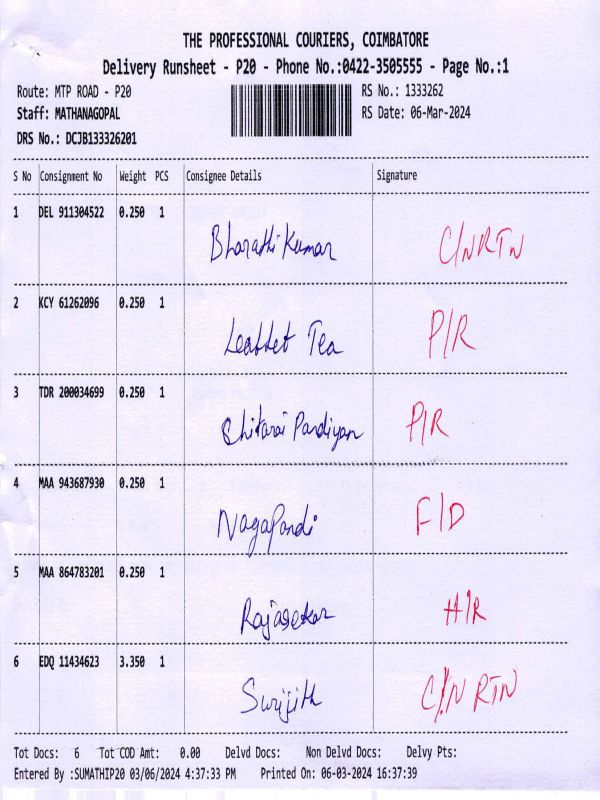 THE PROFESSIONAL COURIERS, COIMBATORE
Delivery Runsheet - P20 - Phone No.:0422-3505555 - Page No.:1
Route: MTP ROAD - P20 RS No.: 1333262
Staff: MATHANAGOPAL RS Date: 06-Mar-2024
DRS No.: DCJB133326201
S No Consignment No Weight PCS Consignee Details Signature
1 DEL 911304522 0.250 1
Bharathi Kumar C/NRTN
2 KCY 61262096 0.250 1
Leaffet Tea P/R
3 TDR 200034699 0.250 1
Chitarai Pandiyan P/R
4 MAA 943687930 0.250 1
NagaPandi F/D
5 MAA 864783201 0.250 1
Rajasekar H/R
6 EDQ 11434623 3.350 1
Surijith C/N RTN
Tot Docs: 6 Tot COD Amt: 0.00 Delvd Docs: Non Delvd Docs: Delvy Pts:
Entered By :SUMATHIP20 03/06/2024 4:37:33 PM Printed On: 06-03-2024 16:37:39